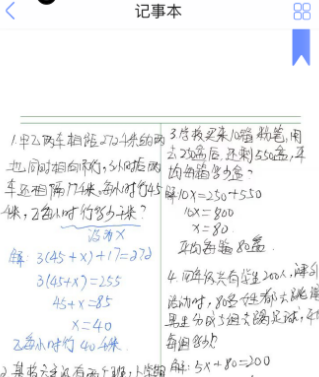 记事本
1.甲乙两车相距272千米的两
地同时相向而行,3小时后两
车还相隔17千米,每小时行45
千米,乙每小时行多少千米?
设为X
解: 3(45+x)+17=272
3(45+x)=255
45+x=85
x=40
乙每小时行40千米.
3.学校买来10箱粉笔,用
去250盒后,还剩550盒,平
均每箱多少盒?
解:10x=250+550
10x=800
x=80
平均每箱80盒.
4.四年级共有学生200人,课外
活动时,80名女生都去跳绳
男生分成5组去踢足球,平
每组多少
解:5x+80=200